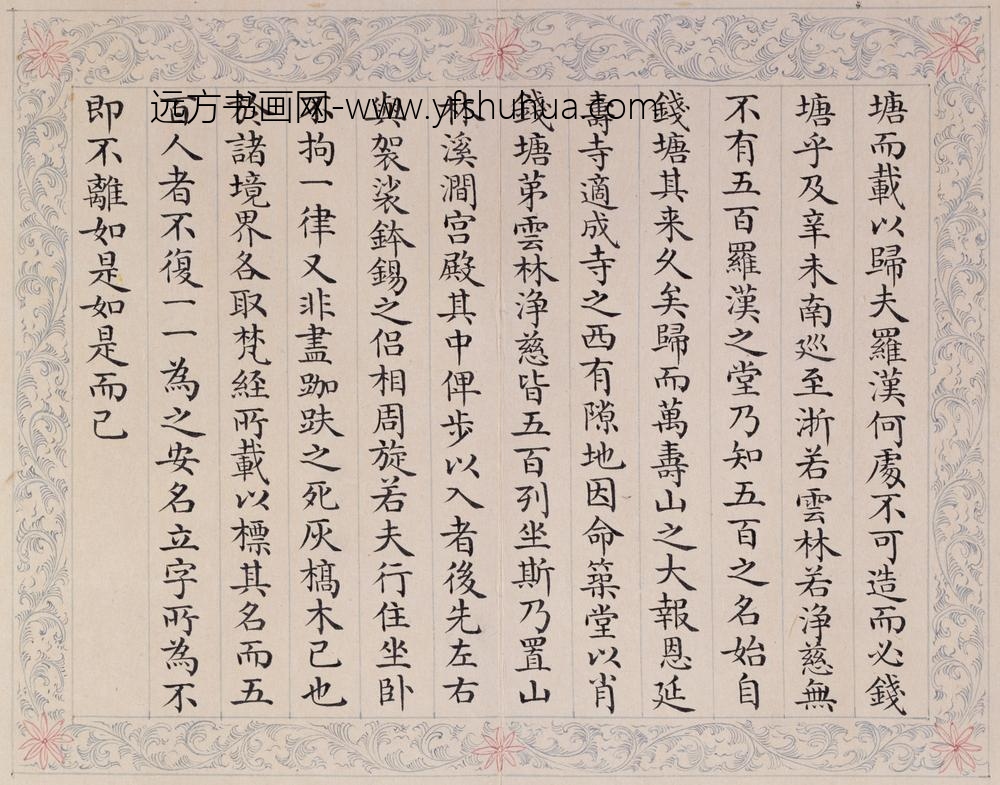 塘而載以歸夫羅漢何處不可造而必錢
塘乎及辛未南廵至浙若雲林若浄慈無
不有五百羅漢之堂乃知五百之名始自
錢塘其来久矣歸而萬壽山之大報恩延
壽寺適成寺之西有隙地因命築堂以肖
錢塘苐雲林浄慈皆五百列坐斯乃置山
林溪澗宫殿其中俾步以入者後先左右
與袈裟鉢錫之侣相周旋若夫行住坐卧
不拘一律又非盡跏趺之死灰槁木已也
於諸境界各取梵経所載以標其名而五
百人者不復一一為之安名立字所為不
即不離如是如是而已
远方书画网-www.yfshuhua.com